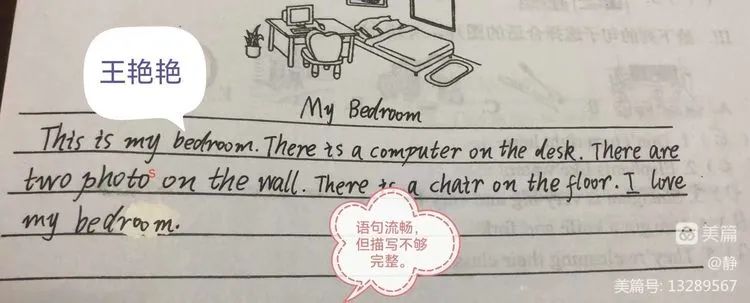 III. 给下列的句子选择合适的图
王艳艳
My Bedroom
This is my bedroom. There is a computer on the desk. There are
two photos on the wall. There is a chair on the floor. I love
my bedroom.
语句流畅，
但描写不够
完整。
美篇
@静
美篇号: 13289567